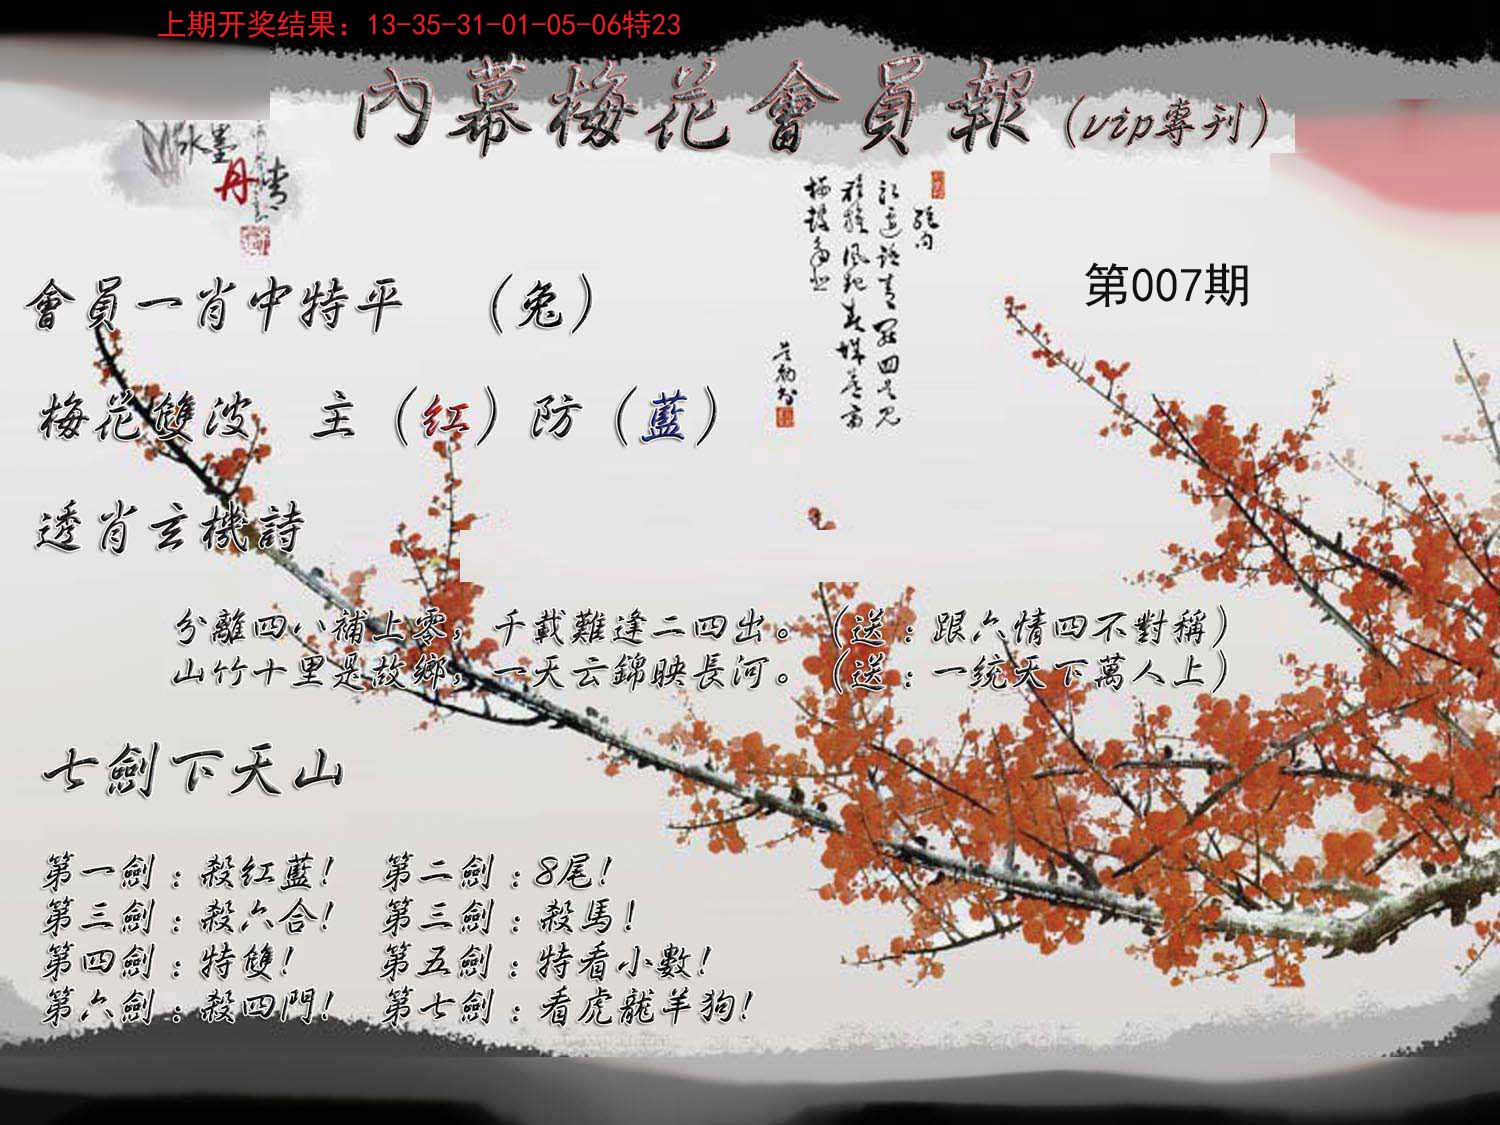 上期开奖结果：13-35-31-01-05-06特23
內幕梅花會員報（vip專刊）
水墨
丹青
第007期
會員一肖中特平　（兔）
梅花雙波　主（红）防（藍）
透肖玄機詩
分離四八補上零，千載難逢二四出。（送：跟六情四不對稱）
山竹十里是故鄉，一天云錦映長河。（送：一统天下萬人上）
七劍下天山
第一劍：殺紅藍！　第二劍：8尾！
第三劍：殺六合！　第三劍：殺馬！
第四劍：特雙！　第五劍：特看小數！
第六劍：殺四門！　第七劍：看虎龍羊狗！